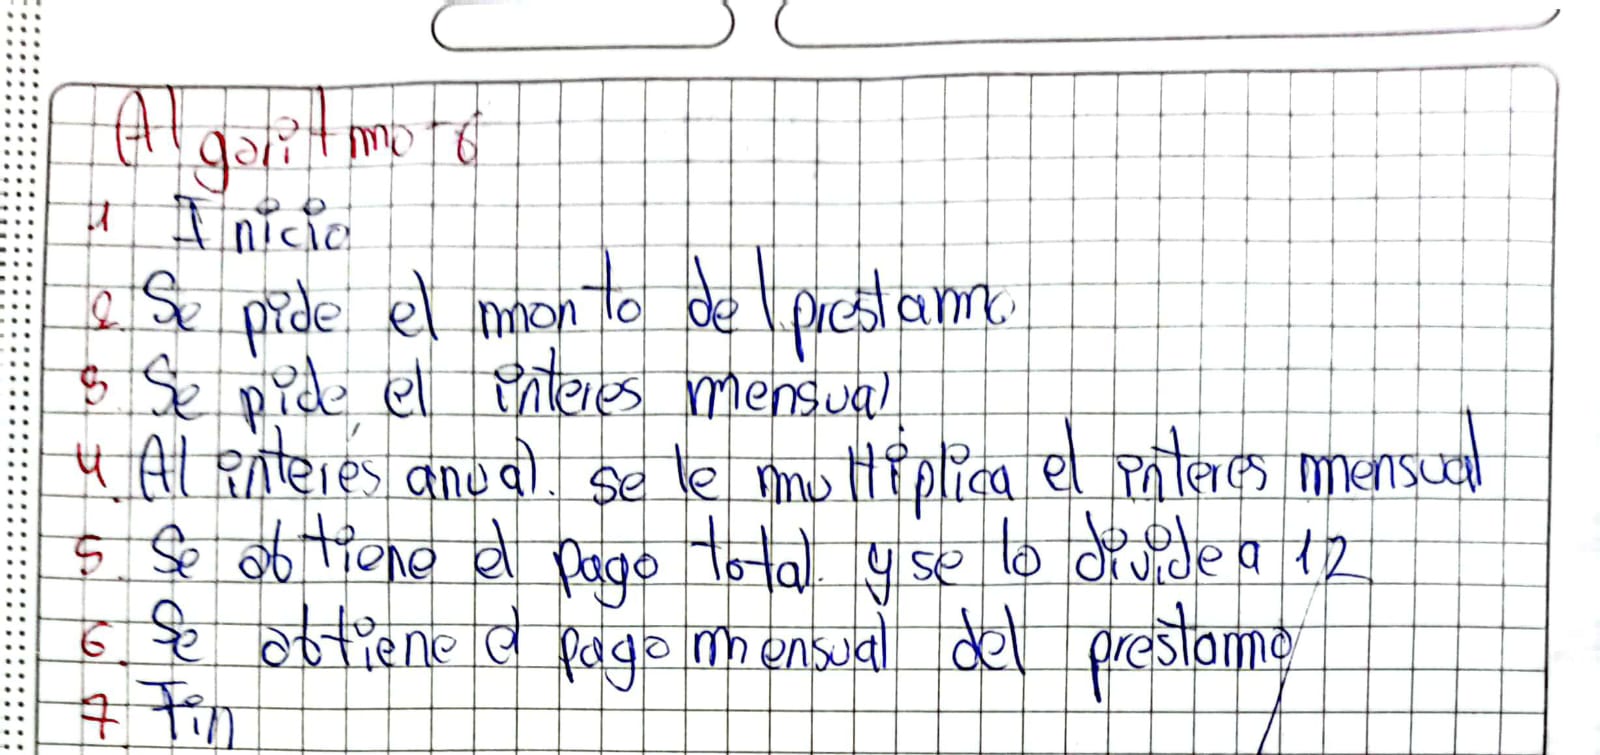 Algoritmo-6
1 Inicio
2. Se pide el monto del prestamo
3. Se pide el interes mensual
4. Al interés anual. se le multiplica el interes mensual
5. Se obtiene el pago total. y se lo divide a 12
6. Se obtiene el pago mensual del prestamo
7 Fin